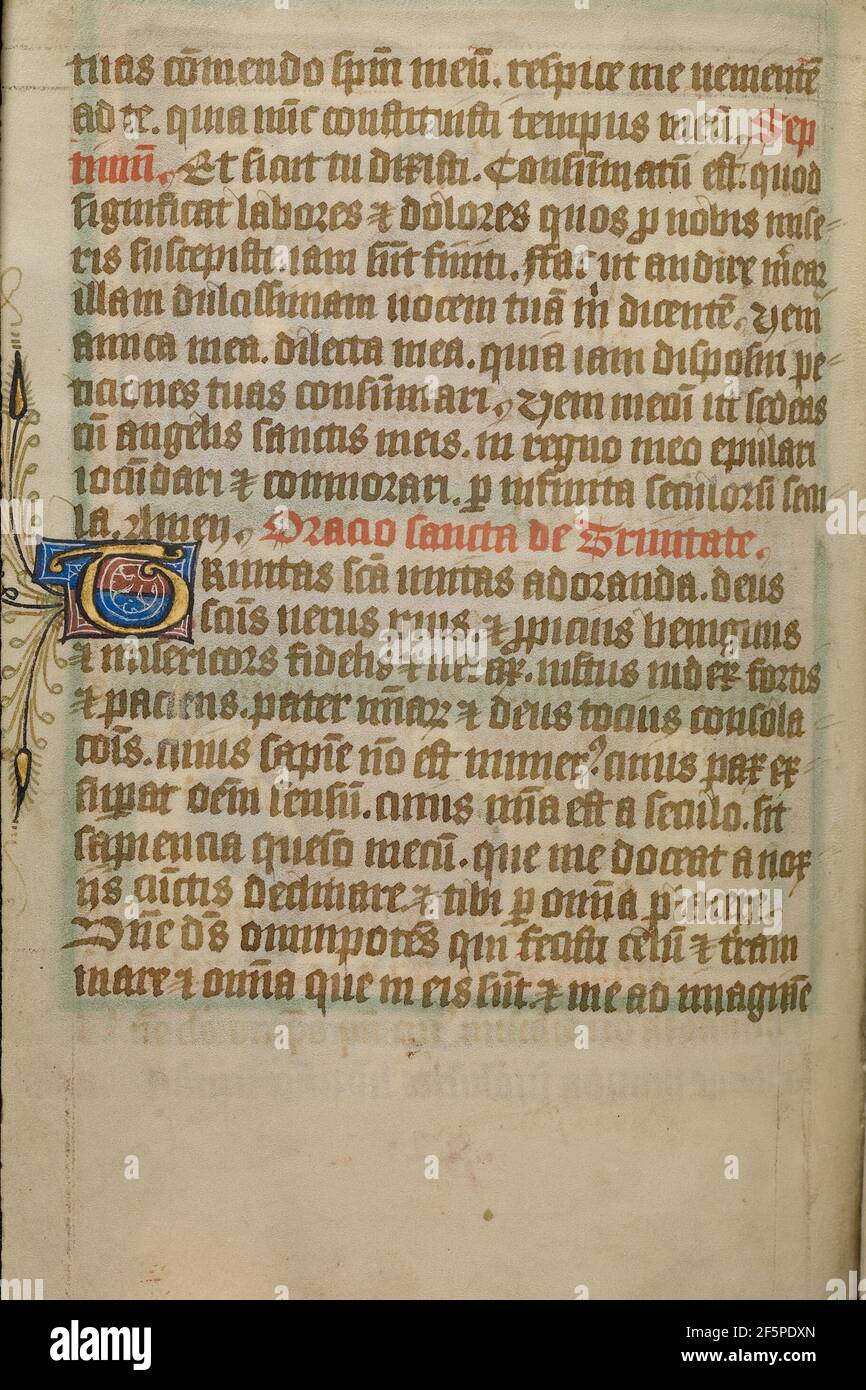 tuas cōmendo spm̄ meū. respice me uementē
ad te. quia nūc constituisti tempus meū. Sep
timū. Et sicut tu dixisti. Consūmatū est. quod
significat labores ⁊ dolores quos ꝑ nobis mise-
ris suscepisti. iam sūt finiti. ffac ut audire m̄ear
illam dulcissimam uocem tuā m̄ dicentē. Veni
amica mea. dilecta mea. quia iam disposui pe-
ticiones tuas consūmari. Veni mecū ut sedeas
cū angelis sanctis meis. in regno meo epulari
iocūdari ⁊ commorari. ꝑ infinita seculorū secu
la. Amen. Oracio sancta de Trinitate.
TRinitas scā unitas adoranda. deus
scōis uerus pius. ⁊ ꝓpicius benignus
⁊ misericors fidelis ⁊ iustus iudex fortis
⁊ paciens. pater mīar ⁊ deus tocius consola
cōis. cuius sapiē nō est numer᷒. cuius pax ex-
suꝑat oēm sensū. cuius mīa est a seculo. sit
sapiencia queso mecū. que me doceat a nox-
iis cūctis declinare. ⁊ tibi ꝑ omīa
Dn̄e ds̄ omnipotēs qui fecisti celū ⁊ tr̄am
mare ⁊ omīa que in eis sūt. ⁊ me ad imaginē
alamy
Image ID: 2F5PDXN
www.alamy.com